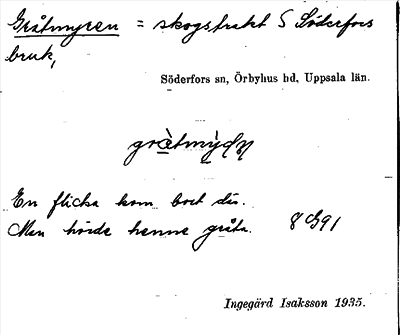 Gråtmyren = skogstrakt S Söderfors
bruk,
Söderfors sn, Örbyhus hd, Uppsala län.
En flicka kom bort där.
Man hörde henne gråta. 8 G91
Ingegärd Isaksson 1935.